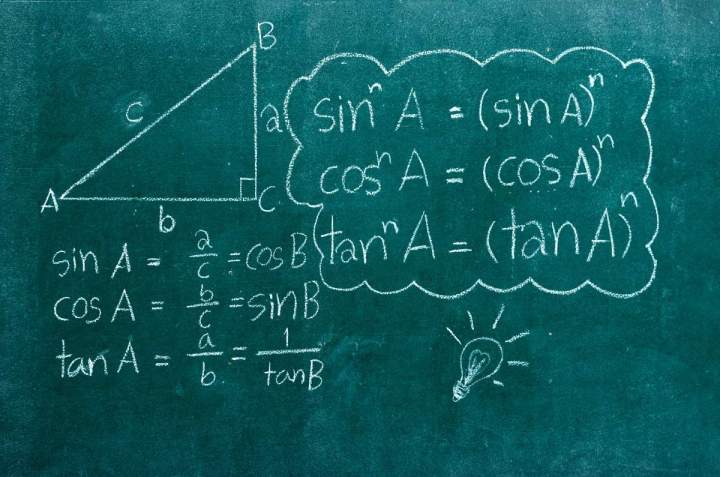 B
c
a
A
C
b
sinⁿ A = (sin A)ⁿ
cosⁿ A = (cos A)ⁿ
tanⁿ A = (tan A)ⁿ
sin A = a/c = cos B
cos A = b/c = sin B
tan A = a/b = 1/tan B